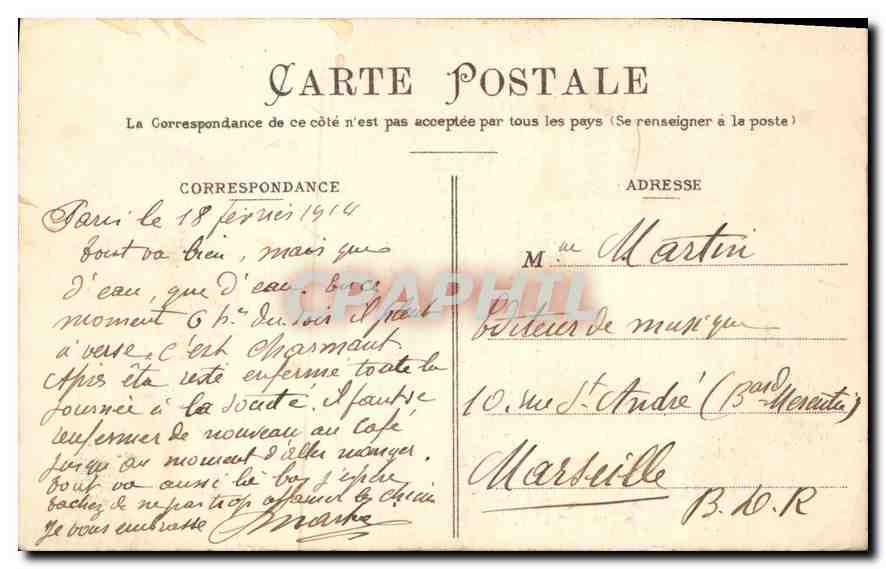 CARTE POSTALE
La Correspondance de ce côté n'est pas acceptée par tous les pays (Se renseigner à la poste)
CORRESPONDANCE
Paris le 18 février 1914
tout va bien, mais que
d'eau, que d'eau. En ce
moment 6 h. du soir il pleut
à verse, c'est charmant
Après être resté enfermé toute la
journée à la société. il faut se
renfermer de nouveau au café
jusqu'au moment d'aller manger.
tout va aussi là bas j'espère
tachez de ne pas trop
Je vous embrasse
ADRESSE
Mme Martin
Editeur de musique
10. rue St André (Bard
Marseille
B. D. R
CPAPHIL